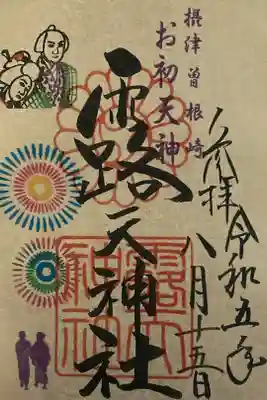 奉拝 令和五年
八月十五日
摂津曽根崎
お初天神
露天神社